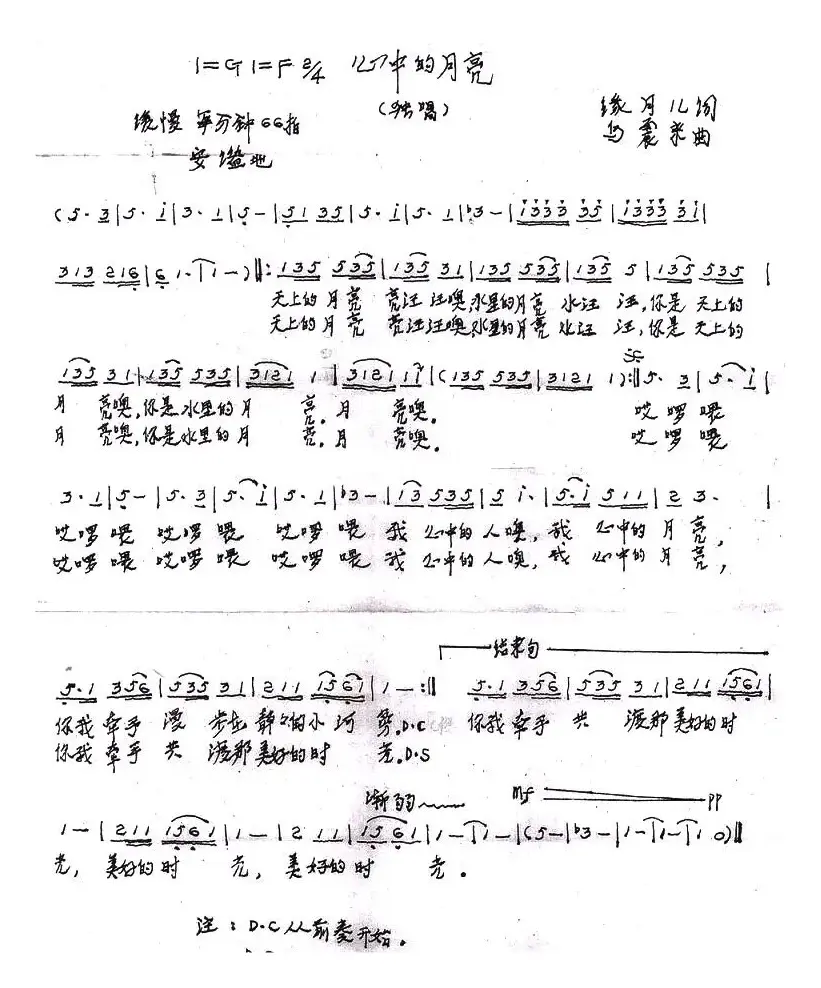 1=G 1=F 2/4 心中的月亮
(独唱)
缘月儿词
缓慢 每分钟66拍
乌震来曲
安谧地
(5· 3|5· i|3· 1|5 -|51 35|5· i|5· 1|♭3 -|i333 35|i333 3i|
313 216|6 1·|1 -)‖:135 535|135 31|135 535|135 5|135 535|
天上的月亮 亮汪汪噢,水里的月亮 水汪汪,你是天上的
天上的月亮 亮汪汪噢,水里的月亮 水汪汪,你是天上的
135 31|135 535|3121 1|3121 11|(135 535|3121 1):‖5· 3|5· i|
月 亮噢,你是水里的月 亮.月 亮噢. 哎啰喂
月 亮噢,你是水里的月 亮.月 亮噢. 哎啰喂
3· 1|5 -|5· 3|5· i|5· 1|♭3 -|13 535|5 i·|5·i 511|2 3· |
哎啰喂 哎啰喂 哎啰喂 我 心中的人噢,我 心中的月亮,
哎啰喂 哎啰喂 哎啰喂 我 心中的人噢,我 心中的月亮,
结束句
5·1 356|535 31|211 1561|1 -:‖ 5·1 356|535 31|211 1561|
你我牵手 漫 步在静静的小河 旁.D.C 你我牵手 共 渡那美好的时
你我牵手 共 渡那美好的时 光.D.S
渐弱 mf pp
1 -|211 1561|1 -|2 11|1561|1 -|1 -|(5 -|♭3 -|1 -|1 -|1 0)‖
光, 美好的时 光, 美好的时 光.
注:D.C从前奏开始.